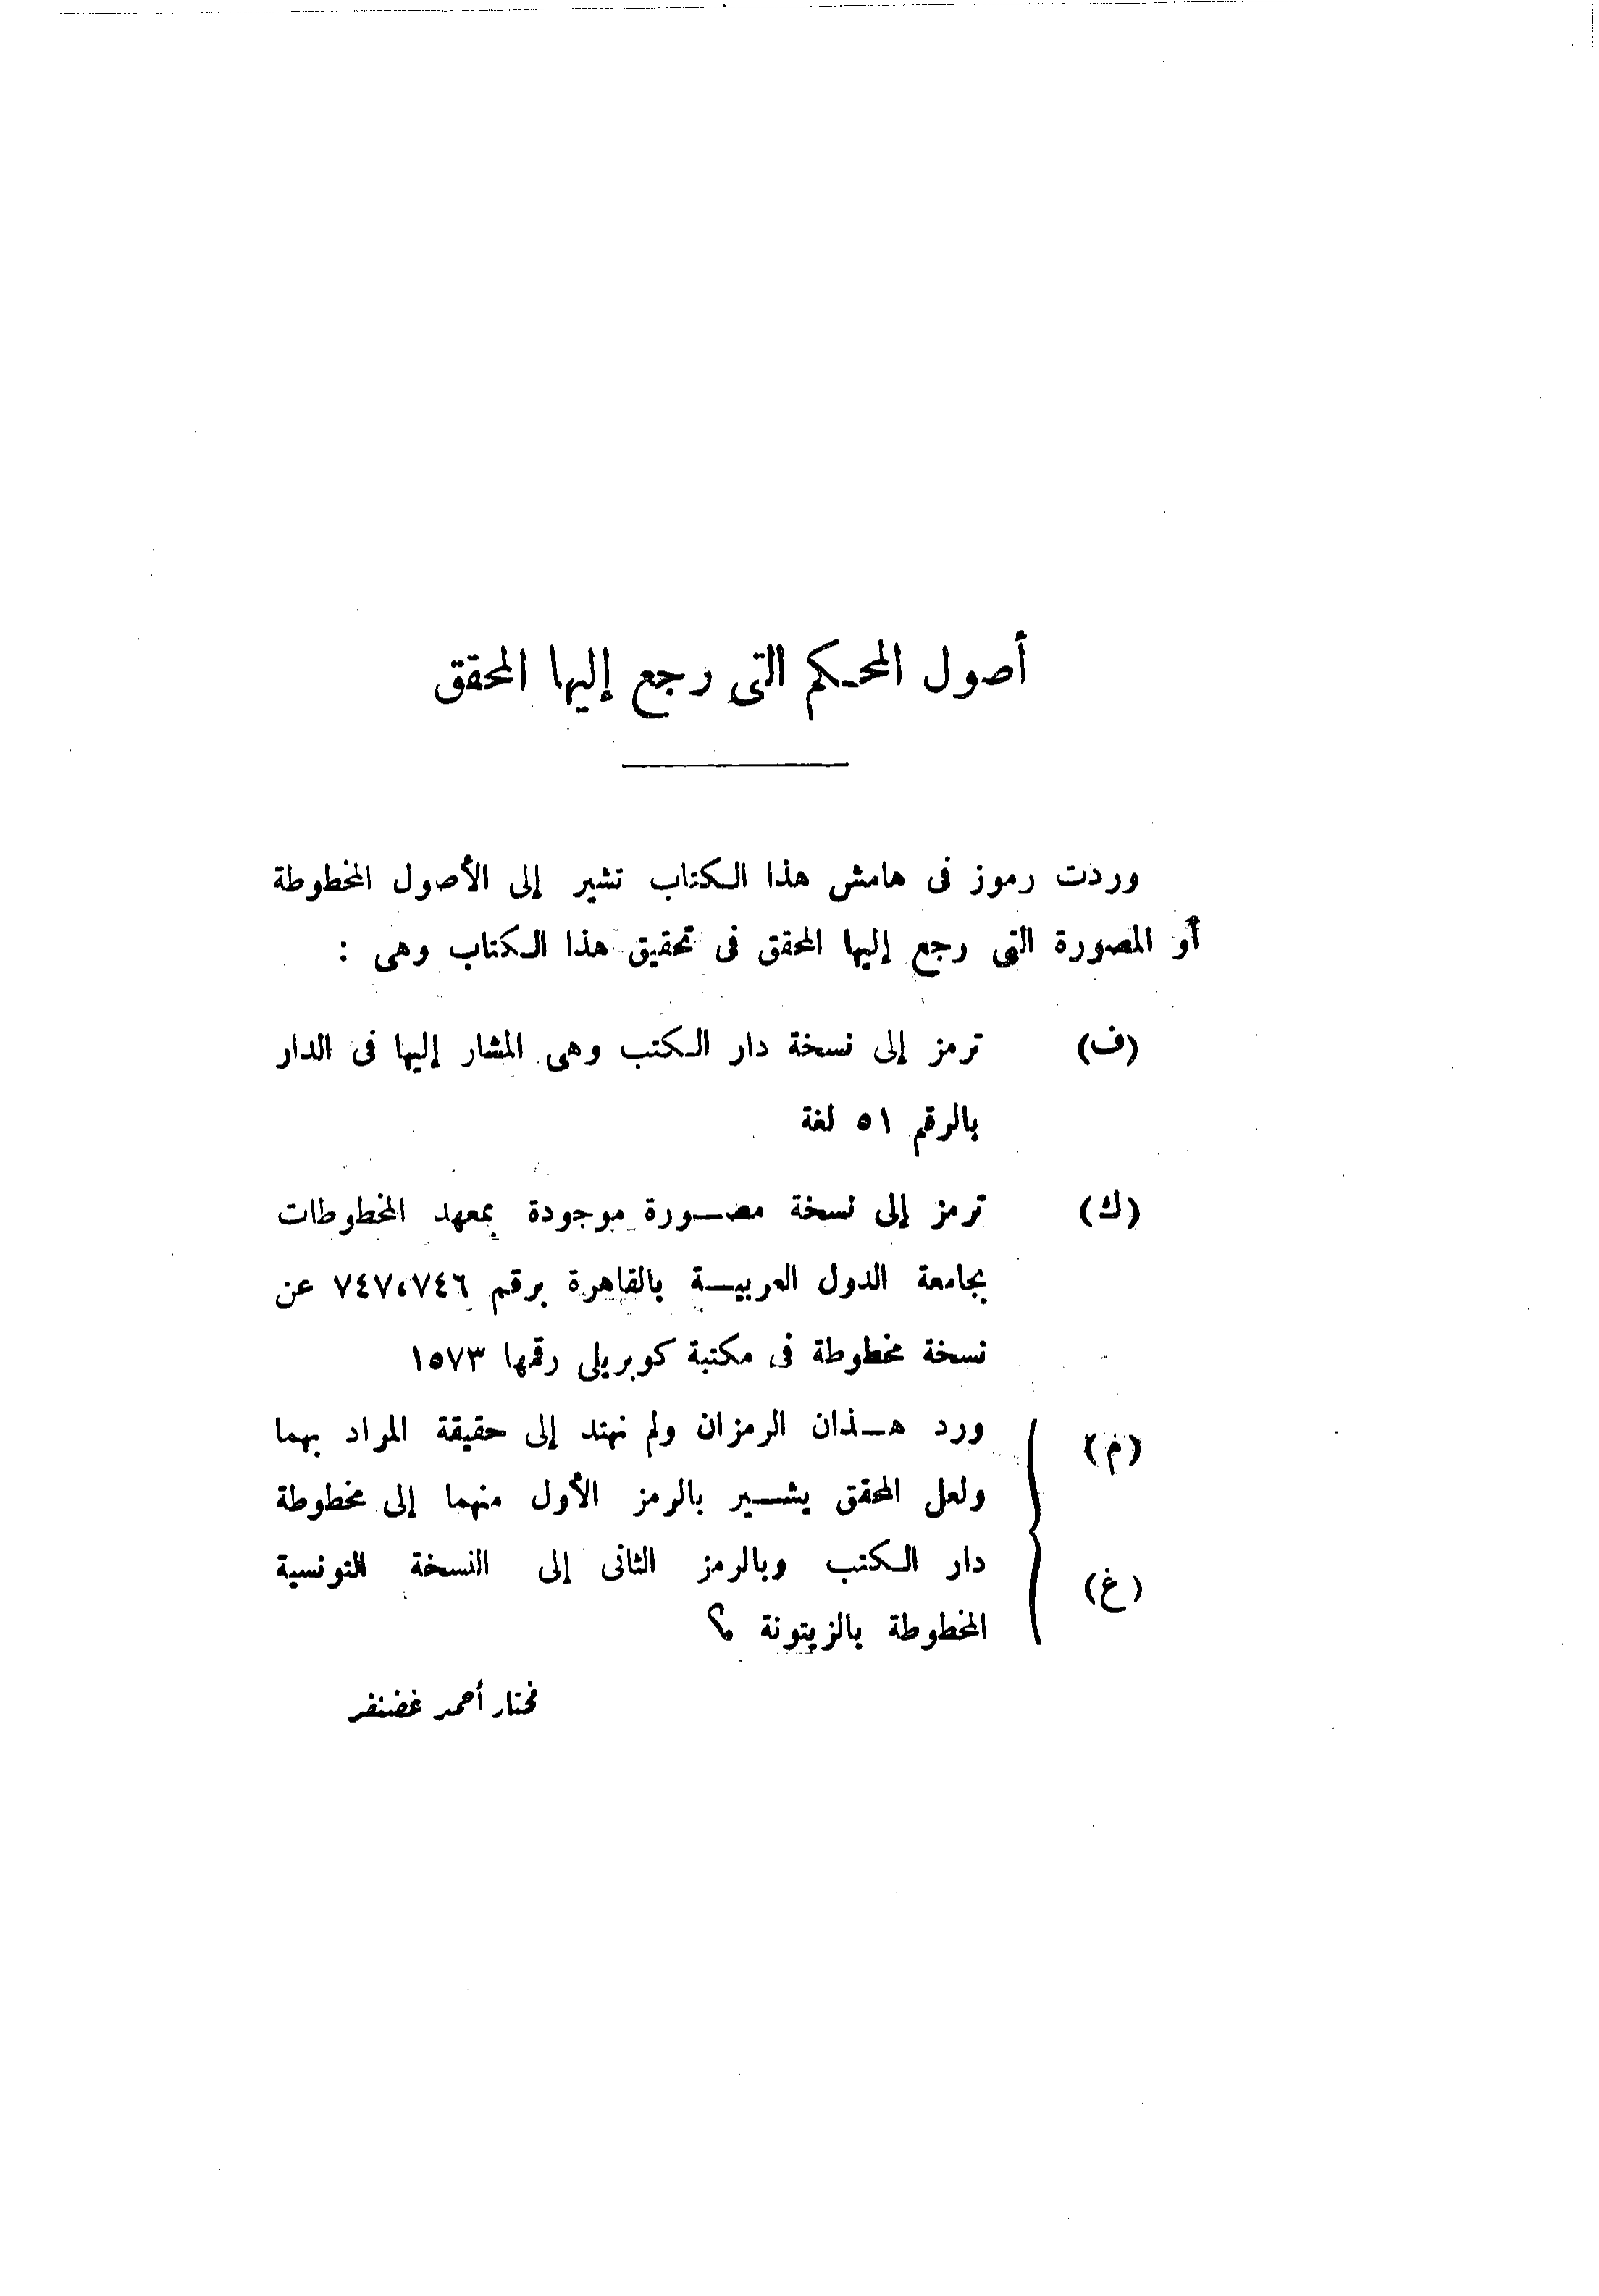 أصول المحكم التى رجع إليها المحقق
وردت رموز فى هامش هذا الكتاب تشير إلى الأصول المخطوطة
أو المصورة التى رجع إليها المحقق فى تحقيق هذا الكتاب وهى :
(ف) ترمز إلى نسخة دار الكتب وهى المشار إليها فى الدار
بالرقم ٥١ لغة
(ك) ترمز إلى نسخة مصورة موجودة بمعهد المخطوطات
بجامعة الدول العربية بالقاهرة برقم ٧٤٧،٧٤٦ عن
نسخة مخطوطة فى مكتبة كوبريلى رقمها ١٥٧٣
(م) ورد هذان الرمزان ولم نهتد إلى حقيقة المراد بهما
ولعل المحقق يشير بالرمز الأول منهما إلى مخطوطة
(غ) دار الكتب وبالرمز الثانى إلى النسخة التونسية
المخطوطة بالزيتونة
مختار أحمد غضنفر